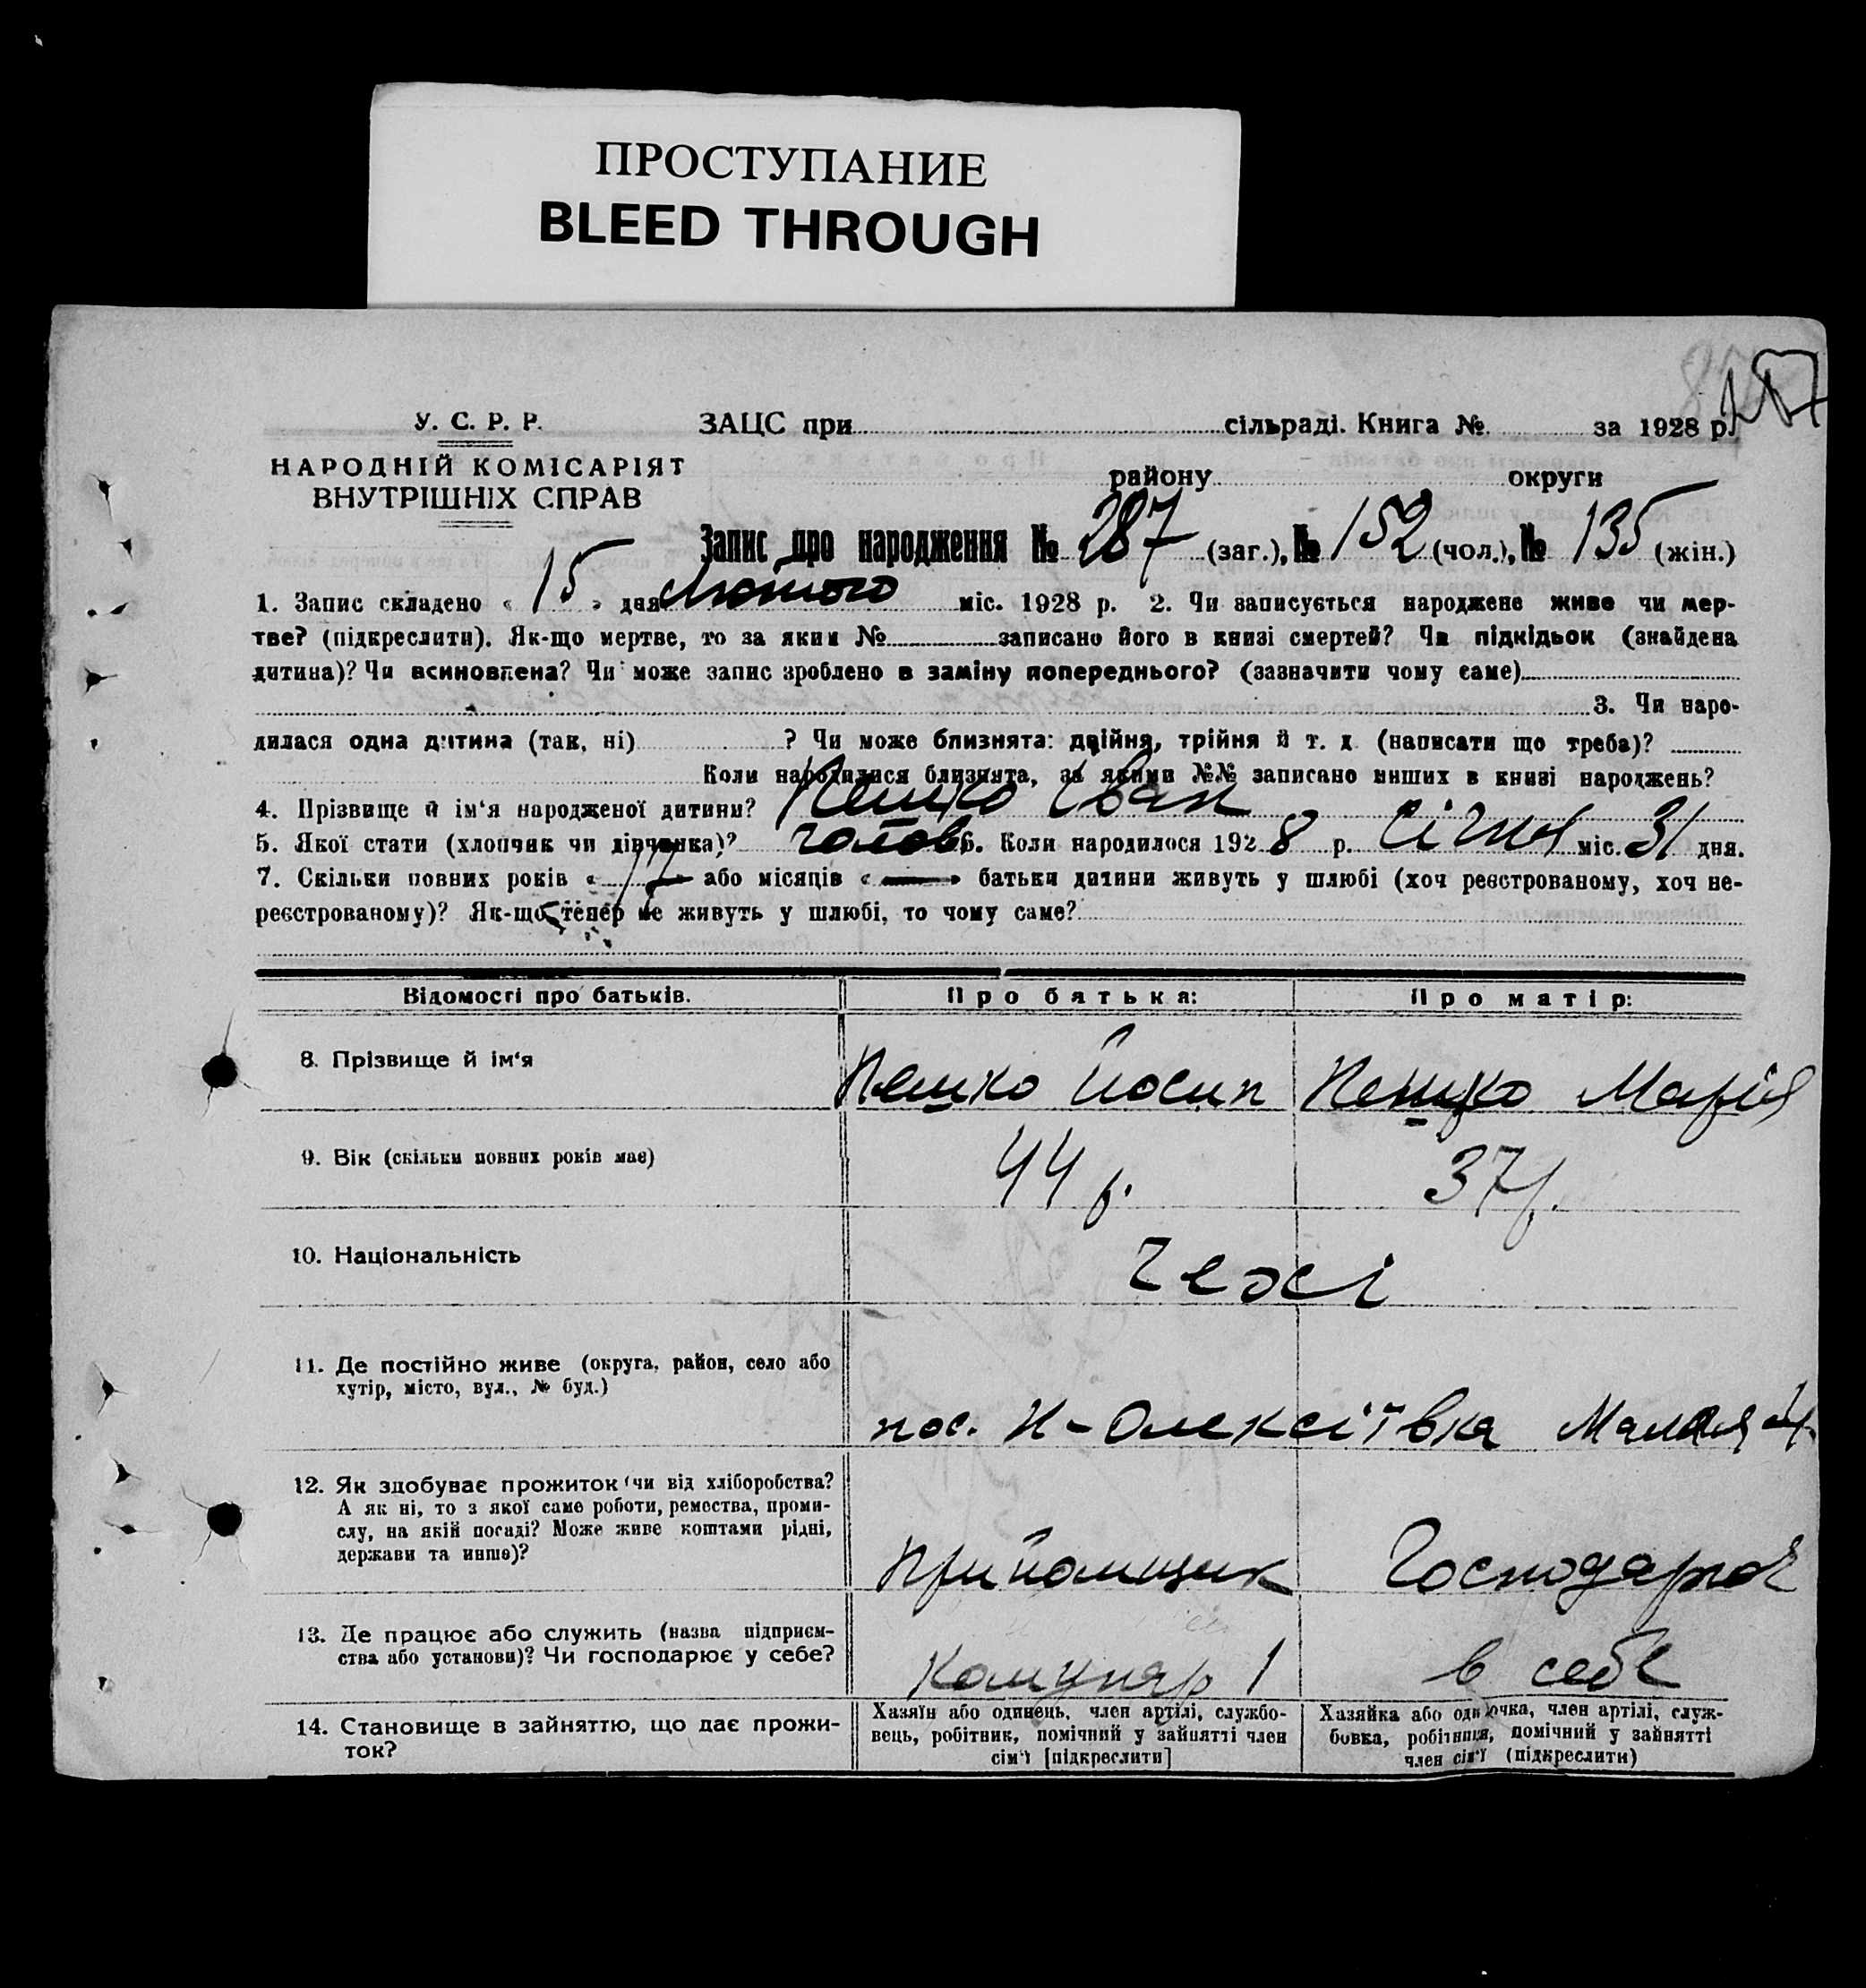 ПРОСТУПАНИЕ
BLEED THROUGH
287
У. С. Р. Р.
НАРОДНІЙ КОМІСАРІЯТ
ВНУТРІШНІХ СПРАВ
ЗАЦС при сільраді. Книга № за 1928 р.
району округи
Запис про народження № 287 (заг.), № 152 (чол.), № 135 (жін.)
1. Запис складено « 15 » дня Лютого міс. 1928 р. 2. Чи записується народжене живе чи мер-
тве? (підкреслити). Як-що мертве, то за яким № записано його в книзі смертей? Чи підкідьок (знайдена
дитина)? Чи всиновлена? Чи може запис зроблено в заміну попереднього? (зазначити чому саме)
3. Чи наро-
дилася одна дитина (так, ні) ? Чи може близнята: двійня, трійня й т. д. (написати що треба)?
Коли народилися близнята, за якими №№ записано инших в книзі народжень?
4. Прізвище й ім‘я народженої дитини? Пешко Іван
5. Якої стати (хлопчик чи дівчинка)? чолов. 6. Коли народилося 1928 р. Січня міс. 31 дня.
7. Скільки повних років « 17 » або місяців « — » батьки дитини живуть у шлюбі (хоч реєстрованому, хоч не-
реєстрованому)? Як-що тепер не живуть у шлюбі, то чому саме?
Відомості про батьків. Про батька: Про матір:
8. Прізвище й ім‘я Пешко Йосип Пешко Марія
9. Вік (скільки повних років має) 44 р. 37 р.
10. Національність чехі
11. Де постійно живе (округа, район, село або
хутір, місто, вул., № буд.)
пос. Н-Олексіївка Малая 4
12. Як здобуває прожиток (чи від хліборобства?
А як ні, то з якої саме роботи, ремества, проми-
слу, на якій посаді? Може живе коштами рідні,
держави та инше)?
Прийомщик Господарює
13. Де працює або служить (назва підприєм-
ства або установи)? Чи господарює у себе?
Комунар 1 в себе
14. Становище в зайняттю, що дає прожи-
ток?
Хазяїн або одинець, член артілі, службо-
вець, робітник, помічний у зайнятті член
сім‘ї [підкреслити]
Хазяйка або одиночка, член артілі, служ-
бовка, робітниця, помічний у зайнятті
член сім‘ї (підкреслити)